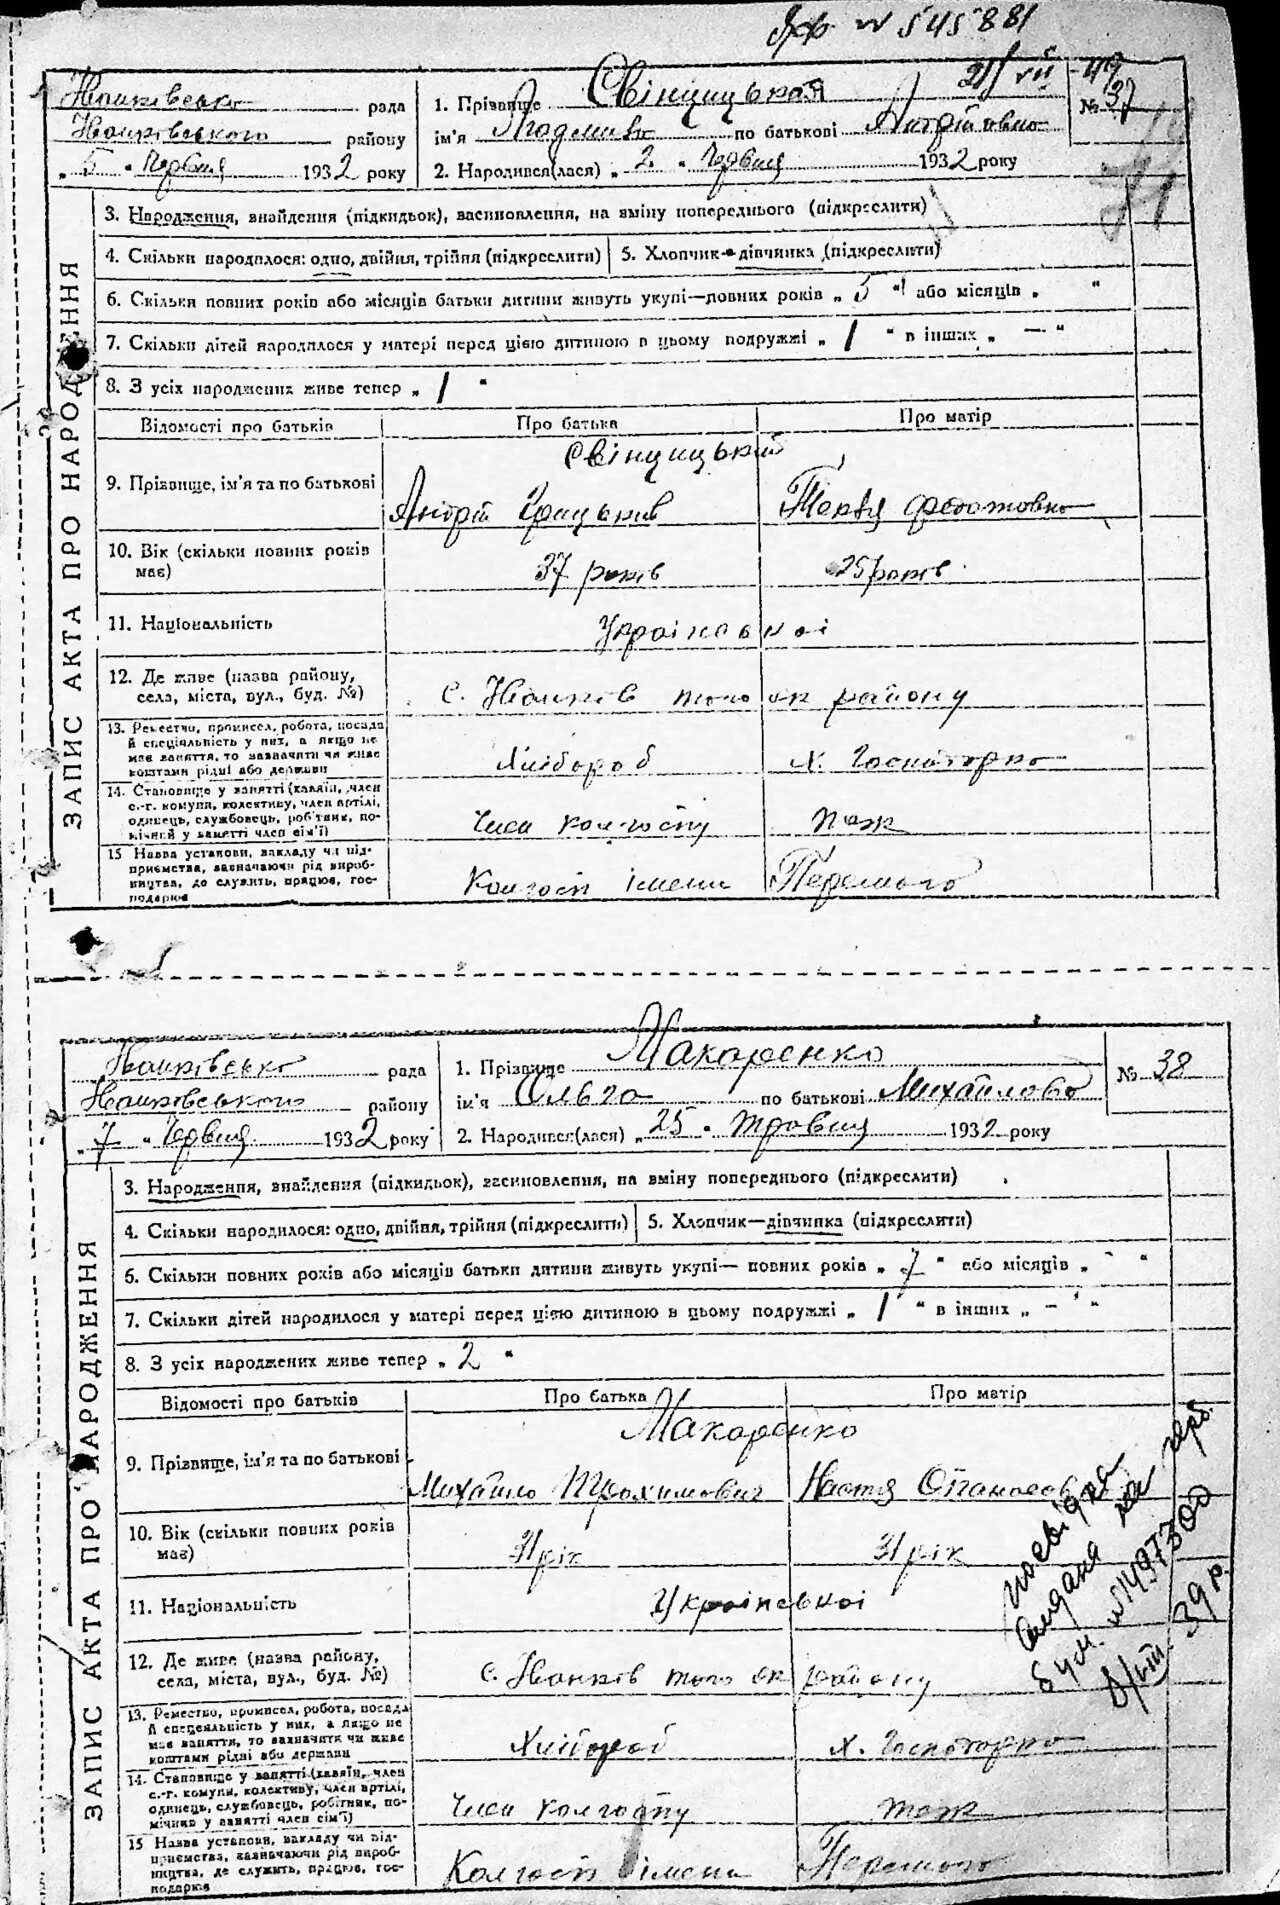 № 545881
21/VII 49
Іванківсько рада
Іванківського району
„ 5 " Червня 1932 року
1. Прізвище Свінцицькая
ім'я Людмила по батькові Андріївна
2. Народився(лася) „ 2 " Червня 1932 року
№ 37
ЗАПИС АКТА ПРО НАРОДЖЕННЯ
3. Народження, знайдення (підкидьок), засиновлення, на зміну попереднього (підкреслити)
4. Скільки народилося: одно, двійня, трійня (підкреслити)
5. Хлопчик—дівчинка (підкреслити)
6. Скільки повних років або місяців батьки дитини живуть укупі—повних років „ 5 " або місяців „ "
7. Скільки дітей народилося у матері перед цією дитиною в цьому подружжі „ 1 " в інших „ — "
8. З усіх народжених живе тепер „ 1 "
Відомості про батьків
Про батька
Про матір
9. Прізвище, ім'я та по батькові
Свінцицький
Андрій Грицьків
Текля Федотовна
10. Вік (скільки повних років має)
37 років
25 років
11. Національність
Української
12. Де живе (назва району,
села, міста, вул., буд. №)
с. Іванків того ж району
13. Ремество, промисел, робота, посада
й спеціяльність у них, а якщо не
має заняття, то зазначити чи живе
коштами рідні або держави
Хлібороб
Х. Господарка
14. Становище у занятті (хазяїн, член
с.-г. комуни, колективу, член артілі,
одинець, службовець, робітник, по-
мічний у занятті член сім'ї)
Член колгоспу
теж
15 Назва установи, закладу чи під-
приємства, зазначаючи рід вироб-
ництва, де служить, працює, гос-
подарює
Колгосп імени Перемога
Іванківсько рада
Іванківського району
„ 7 " Червня 1932 року
1. Прізвище Макаренко
ім'я Ольга по батькові Михайлова
2. Народився(лася) „ 25 " травня 1932 року
№ 38
ЗАПИС АКТА ПРО НАРОДЖЕННЯ
3. Народження, знайдення (підкидьок), засиновлення, на зміну попереднього (підкреслити)
4. Скільки народилося: одно, двійня, трійня (підкреслити)
5. Хлопчик—дівчинка (підкреслити)
6. Скільки повних років або місяців батьки дитини живуть укупі— повних років „ 7 " або місяців „ "
7. Скільки дітей народилося у матері перед цією дитиною в цьому подружжі „ 1 " в інших „ — "
8. З усіх народжених живе тепер „ 2 "
Відомості про батьків
Про батька
Про матір
9. Прізвище, ім'я та по батькові
Макаренко
Михайло Трохимович
Настя Опанасов
10. Вік (скільки повних років має)
31 рік
31 рік
11. Національність
Української
12. Де живе (назва району,
села, міста, вул., буд. №)
с. Іванків того ж району
13. Ремество, промисел, робота, посада
й спеціяльність у них, а якщо не
має заняття, то зазначити чи живе
коштами рідні або держави
Хлібороб
Х. Господарка
14. Становище у занятті (хазяїн, член
с.-г. комуни, колективу, член артілі,
одинець, службовець, робітник, по-
мічний у занятті член сім'ї)
Член колгоспу
теж
15 Назва установи, закладу чи під-
приємства, зазначаючи рід вироб-
ництва, де служить, працює, гос-
подарює
Колгосп імени Перемога
видана на герб.
бум. №1497300
39 р.